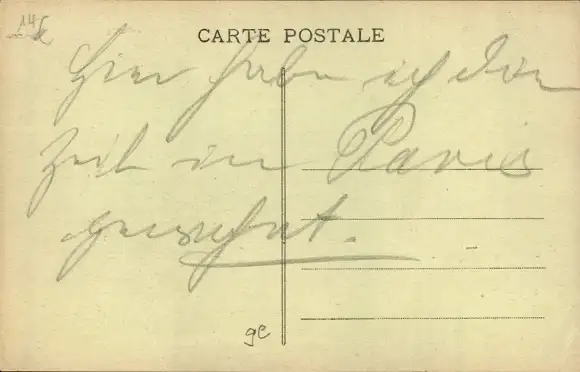 14
CARTE POSTALE
Hier habe ich die
Zeit in Paris
gewohnt.
ge